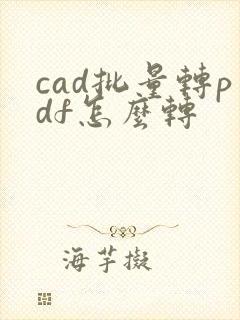 cad批量轉p
df怎麼轉
海芋擬